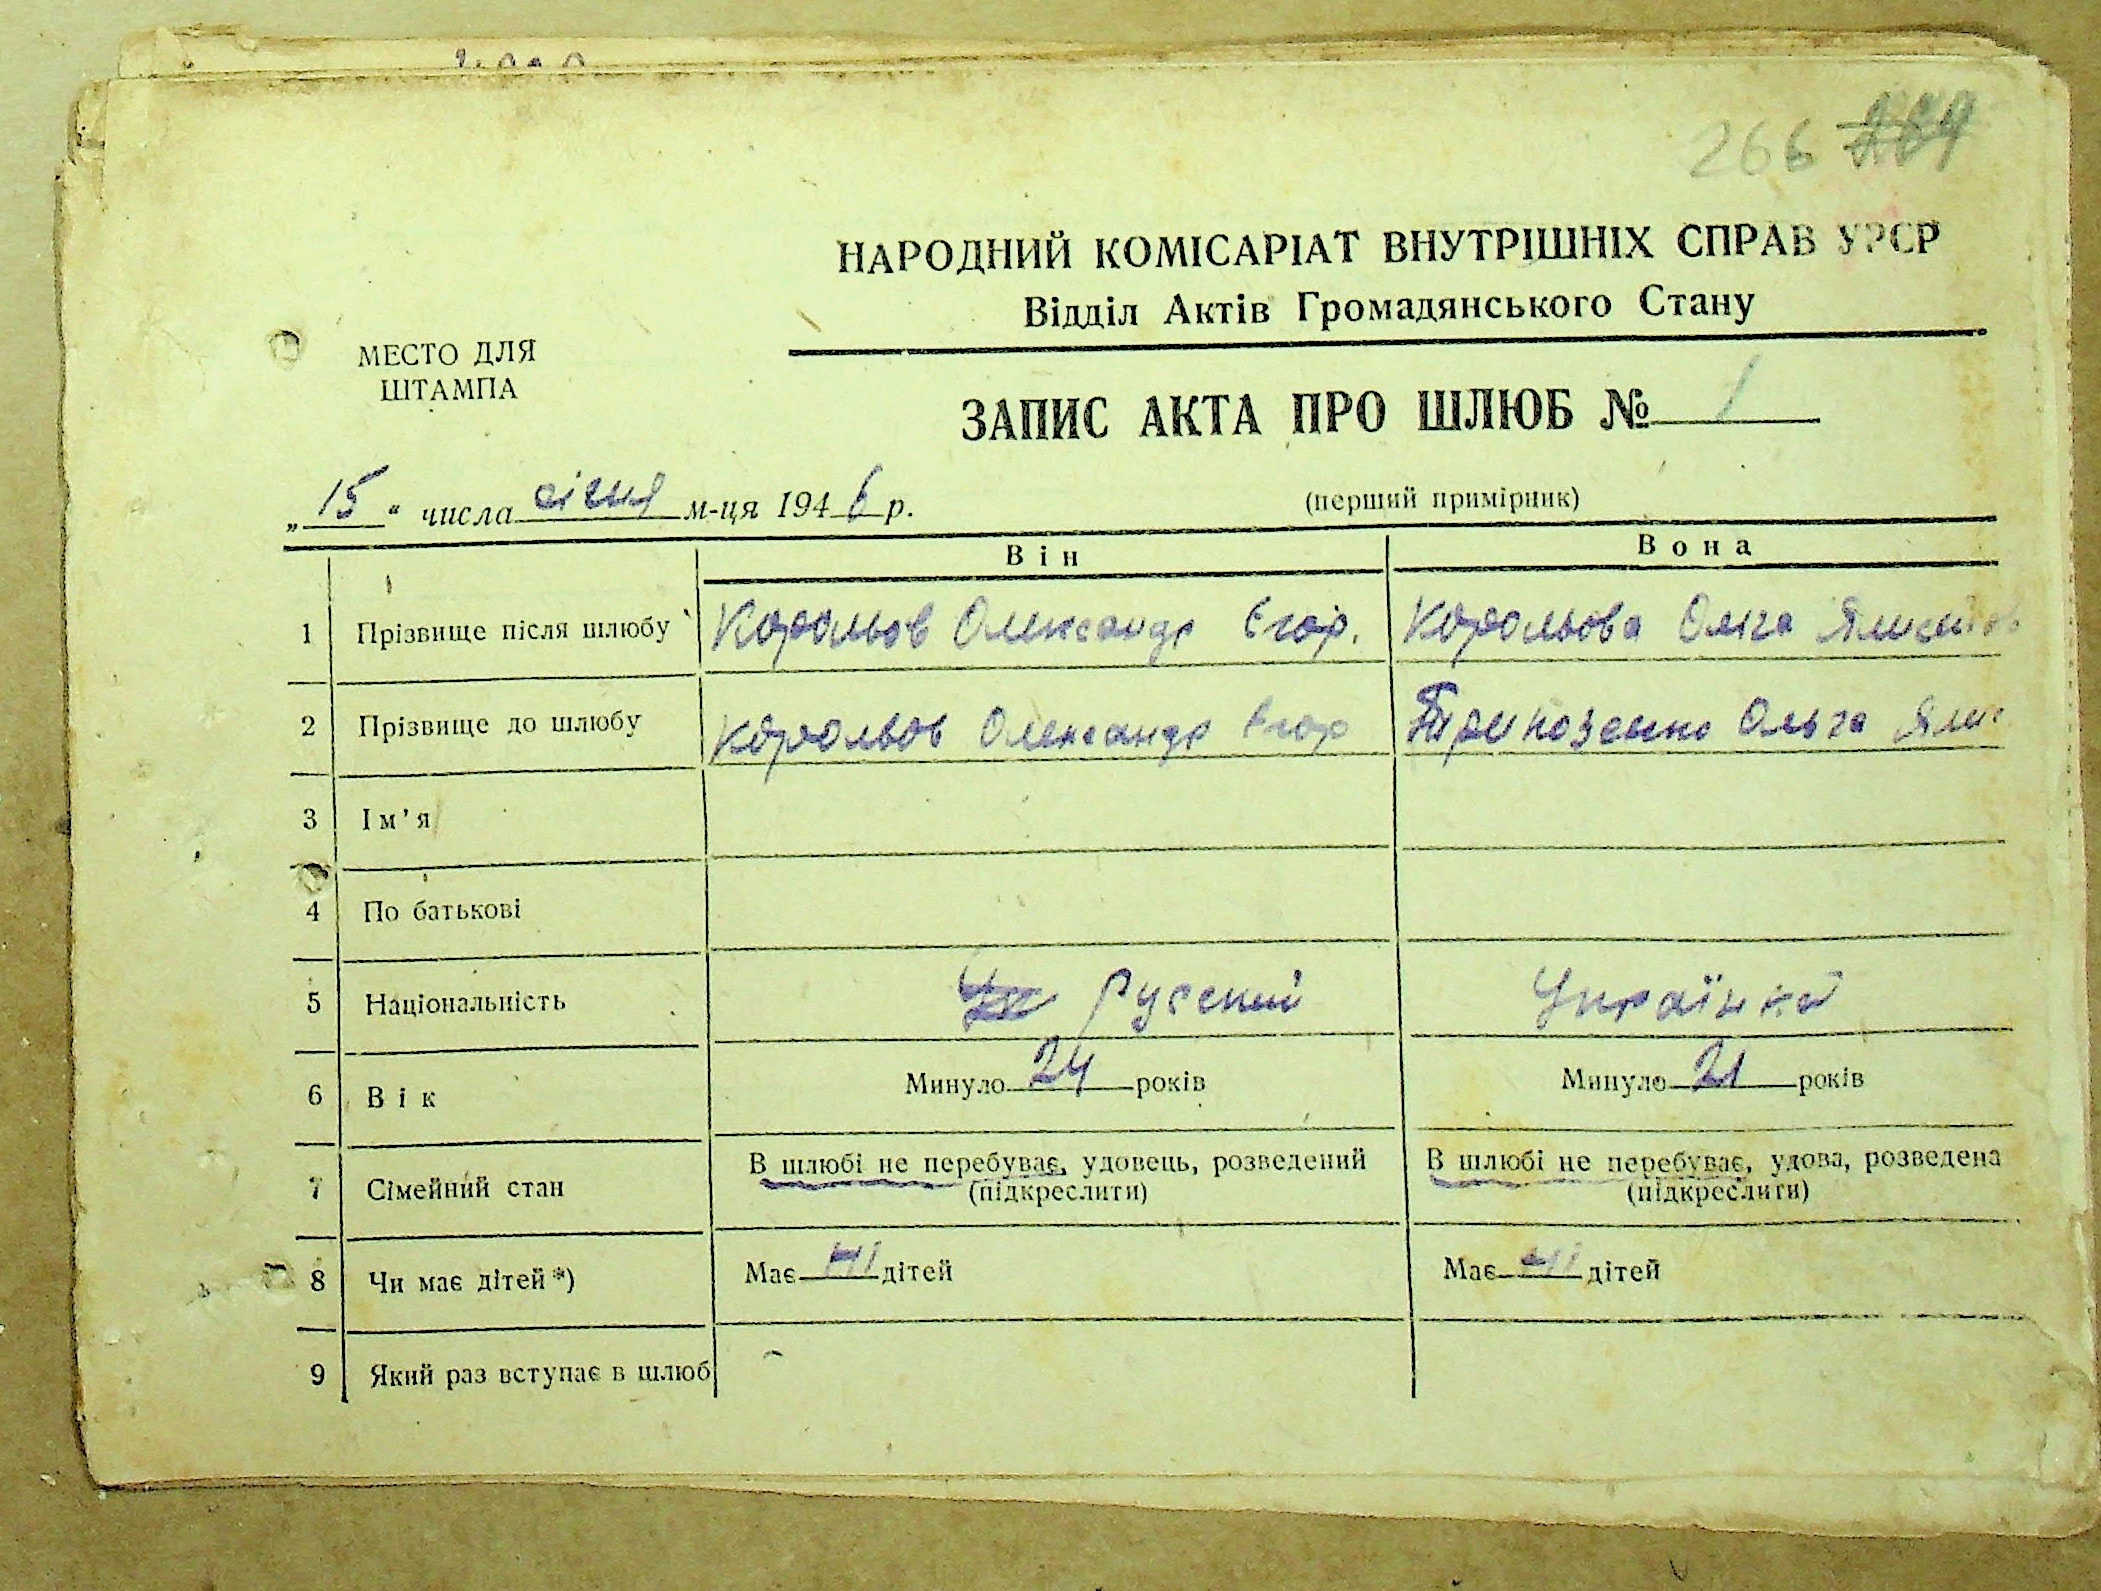 266
НАРОДНИЙ КОМІСАРІАТ ВНУТРІШНІХ СПРАВ УРСР
Відділ Актів Громадянського Стану
МЕСТО ДЛЯ
ШТАМПА
ЗАПИС АКТА ПРО ШЛЮБ № 1
„15“ числа січня м-ця 1946 р.
(перший примірник)
Він Вона
1 Прізвище після шлюбу Корольов Олександр Єгор. Корольова Ольга
2 Прізвище до шлюбу Корольов Олександр Єгор Ольга
3 Ім'я
4 По батькові
5 Національність Русский Українка
6 Вік Минуло 24 років Минуло 21 років
7 Сімейний стан В шлюбі не перебуває, удовець, розведений В шлюбі не перебуває, удова, розведена
(підкреслити) (підкреслити)
8 Чи має дітей *) Має ні дітей Має ні дітей
9 Який раз вступає в шлюб